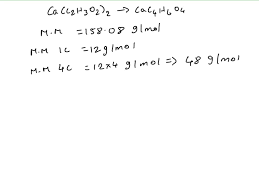 Ca(C₂H₃O₂)₂ → CaC₄H₆O₄
M.M = 158.08 g/mol
M.M 1C = 12 g/mol
M.M 4C = 12×4 g/mol ⇒ 48 g/mol